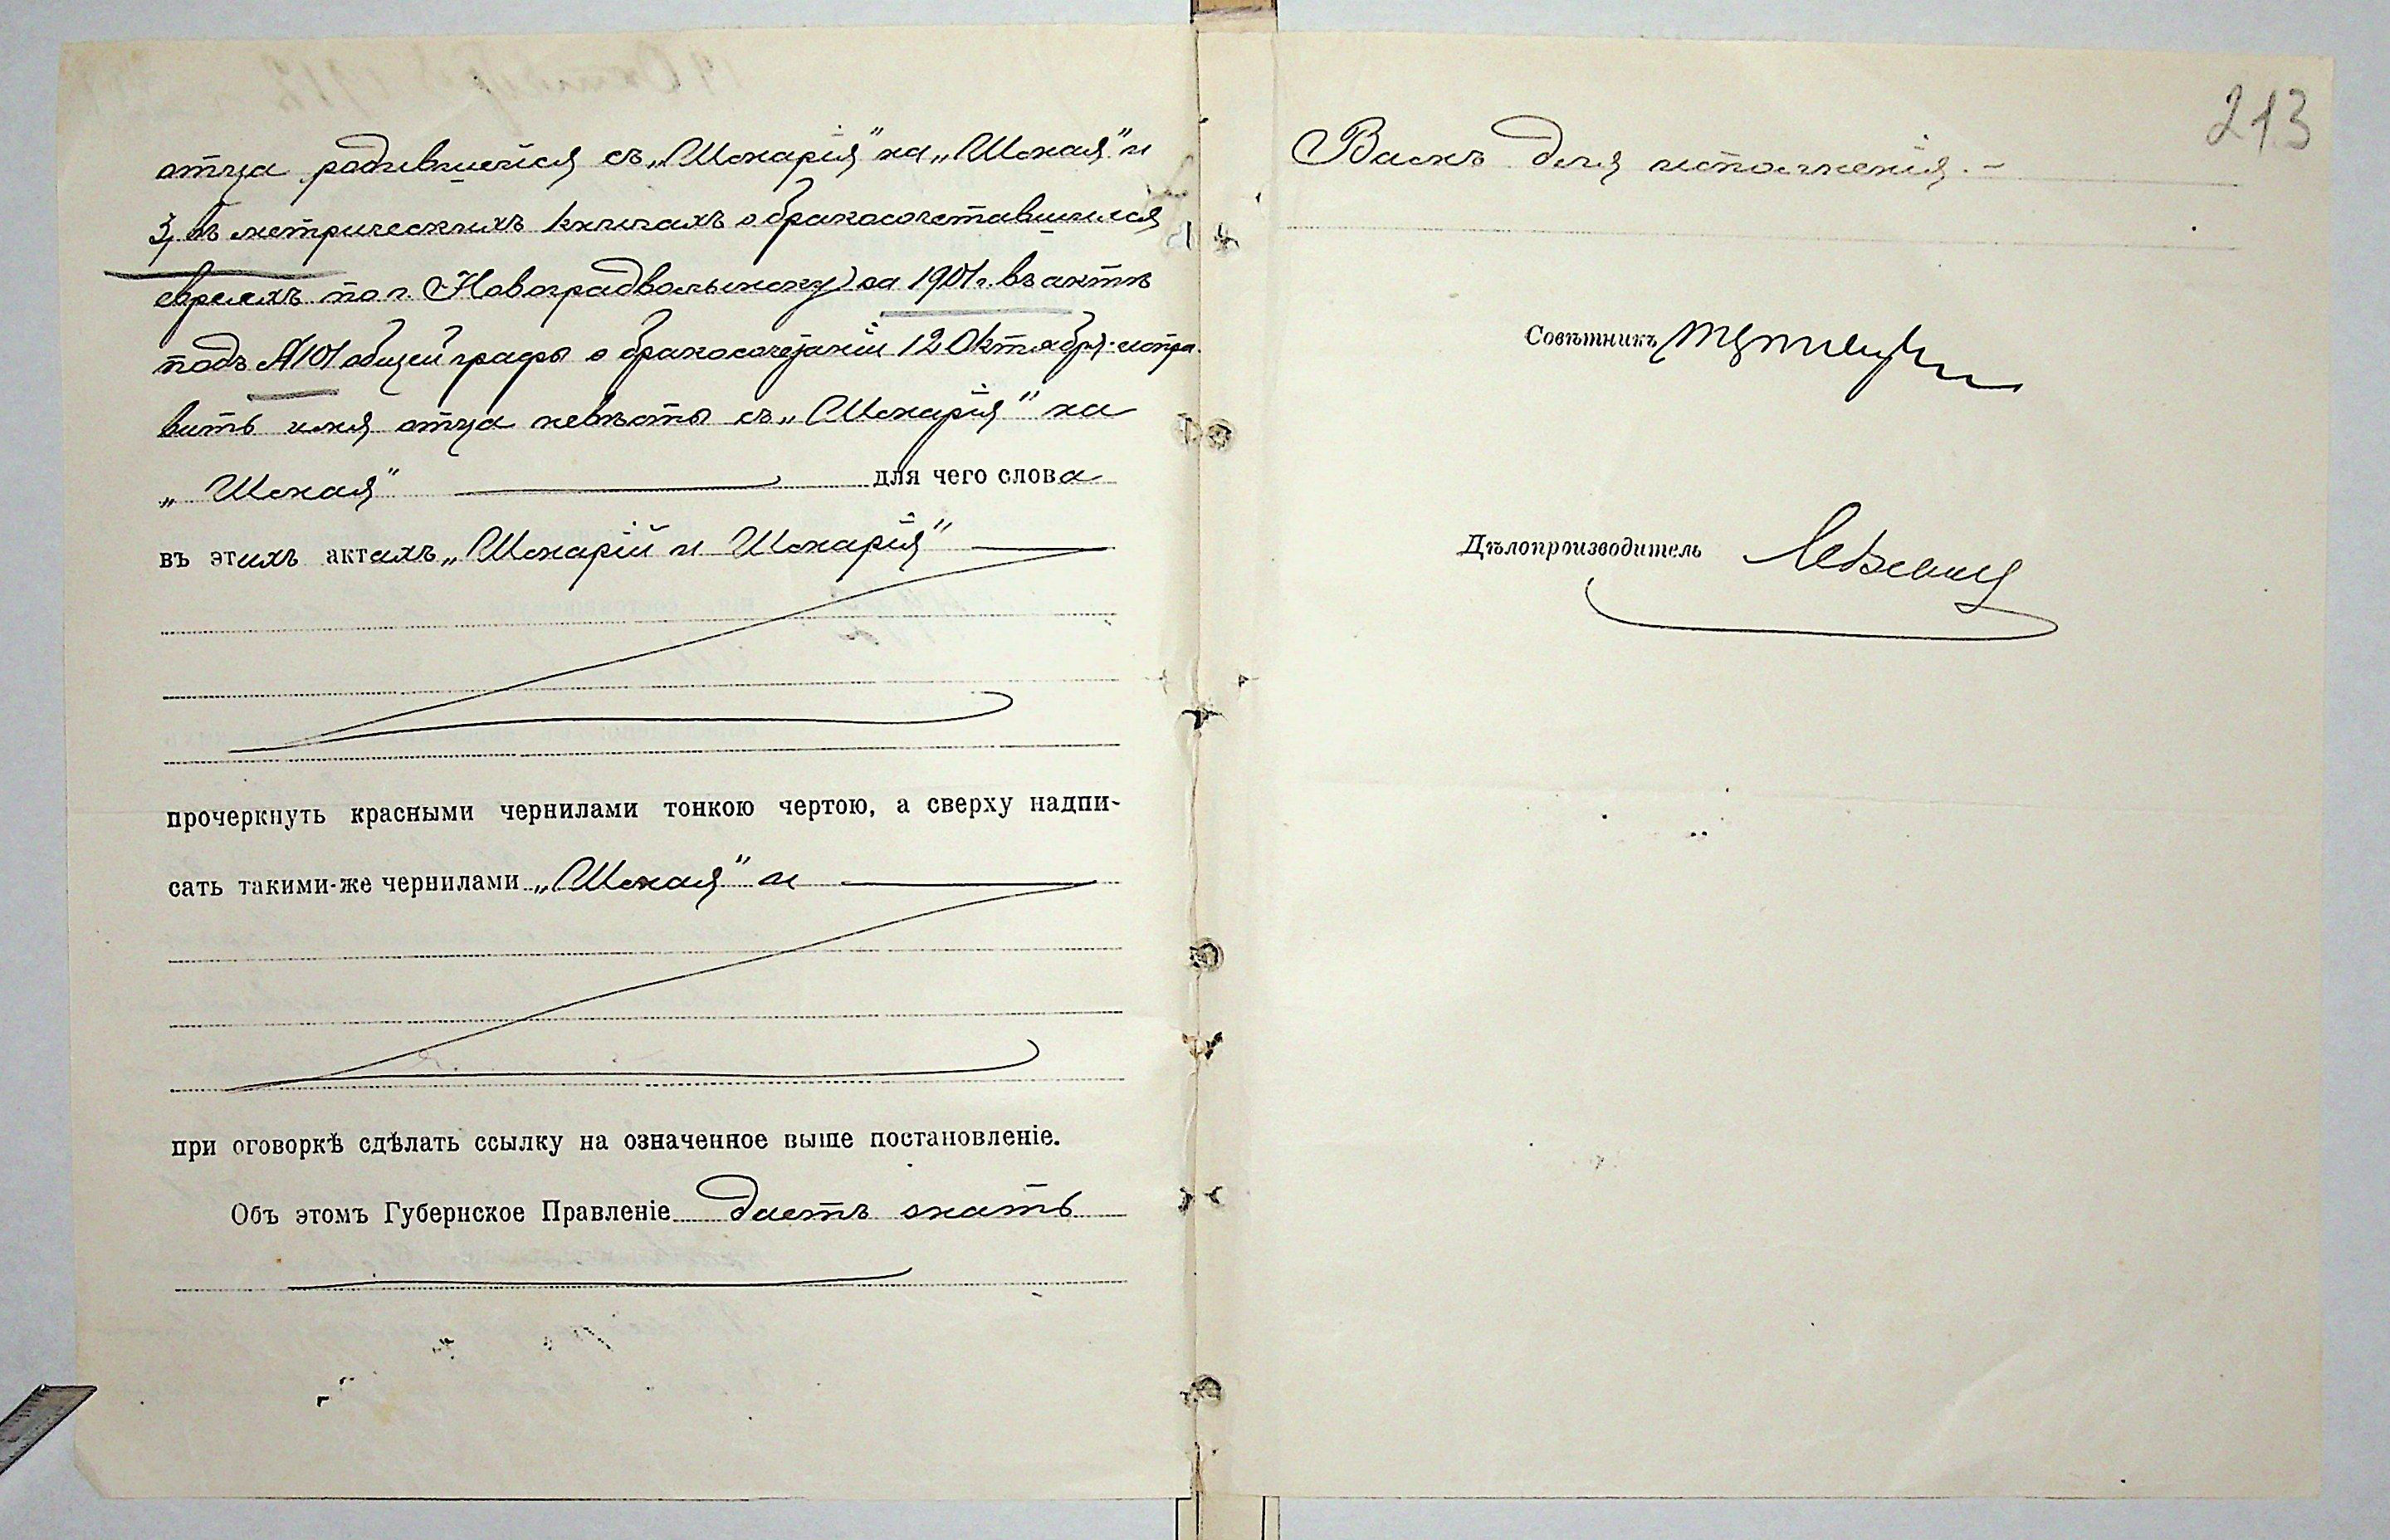 отца родившейся съ „Шкарія" на „Шкая" и
3, въ метрическихъ книгахъ о бракосочетавшихся
евреяхъ по г. Новоградволынску за 1901 г. въ актѣ
подъ № 101 общей графы о бракосочетаніи 12 Октября испра-
вить имя отца невѣсты съ „Шкарія" на
„Шкая" для чего слова
въ этихъ актахъ „Шкарій и Шкарія"
прочеркнуть красными чернилами тонкою чертою, а сверху надпи-
сать такими-же чернилами „Шкая" и
при оговоркѣ сдѣлать ссылку на означенное выше постановленіе.
Объ этомъ Губернское Правленіе даетъ знать
213
Вамъ для исполненія.-
Совѣтникъ
Дѣлопроизводитель